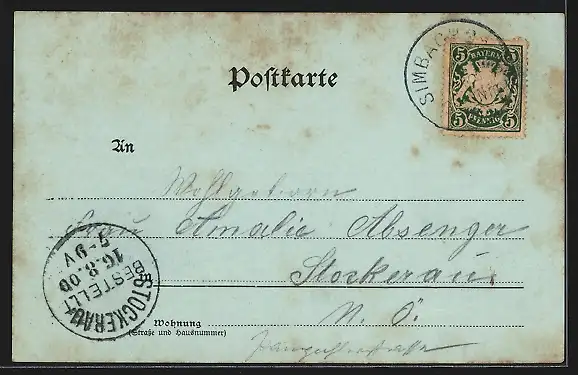 Postkarte
SIMBACH
5 BAYERN 5
5 PFENNIG 5
An
Wohlgeboren
Frau Amalie Absenger
in Stockerau
N. Ö.
Wohnung
(Straße und Hausnummer)
STOCKERAU
BESTELLT
16.8.00
7-9V